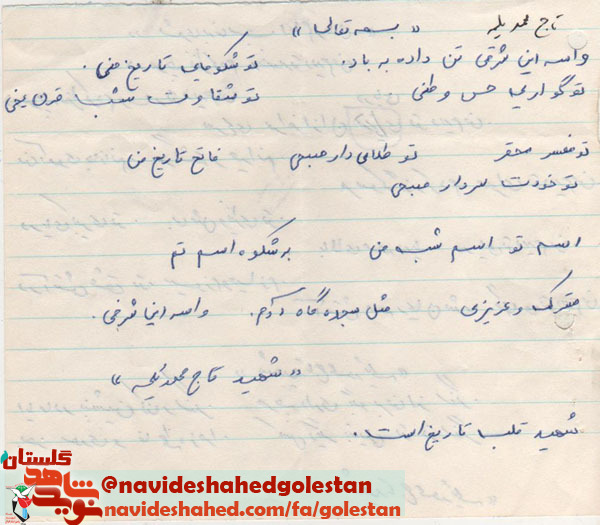 تاج محمد یلمه « بسمه تعالی »
واسه این شرقی تن داده به باد. تو شکوفایی تاریخ منی.
تو گوارایی حس وطنی تو شقاوت شب قرن یخی
تو مفسر محقر تو طلایه‌دار صبحی فاتح تاریخ من
تو خودت سردار صبحی
اسم تو اسم شب من به شکوه اسم تو
متبرک و عزیزی مثل سجده گاه آدم. واسه این شرقی.
« شهید تاج محمد یلمه »
شهید قلب تاریخ است.
گلستان
نوید شاهد
@navideshahedgolestan
navideshahed.com/fa/golestan